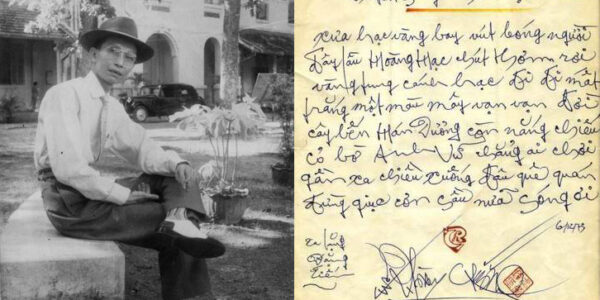 xưa hạc vàng bay vút bóng người
Đây Lầu Hoàng Hạc chút thơm rơi
vàng tung cánh hạc đi đi mất
trắng một màu mây vạn vạn đời
cây bến Hán Dương còn nắng chiếu
cỏ bờ Anh Vũ chẳng ai chơi
gần xa chiều xuống đâu quê quán
đừng giục cơn sầu nữa sóng ơi